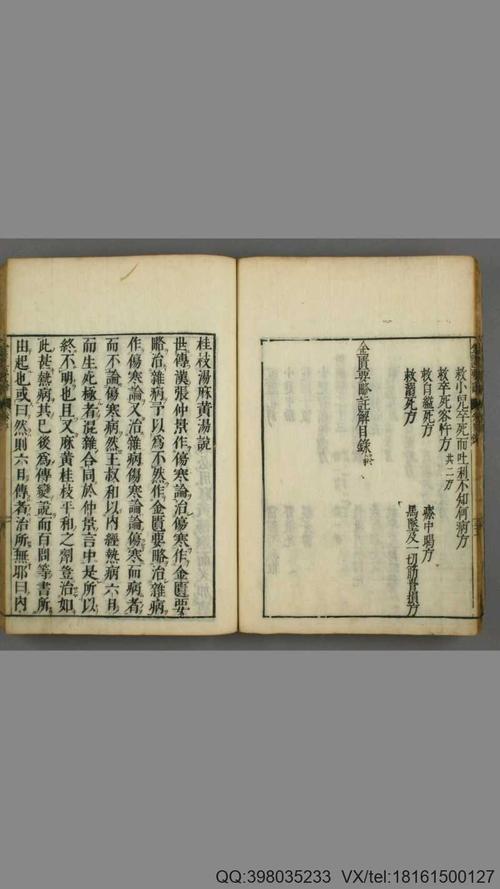 救小兒卒死而吐利不知何病方
救卒死客忤方 共二方
救自縊死方 療中暍方
救溺死方 馬墜及一切筋骨損方
金匱要略註解目錄終
桂枝湯麻黃湯說
世傳漢張仲景作傷寒論治傷寒作金匱要
略治雜病予以為不然作金匱要略治雜病
作傷寒論又治雜病傷寒論論傷寒而病者
而不論傷寒病然王叔和以內經熱病六日
而生死極者混雜合同於仲景言中是所以
終不明也且又麻黃桂枝平和之劑豈治如
此甚熱病其已後為傳變說而百問等書所
由起也或曰然則六日傳者治所無耶曰內
QQ:398035233 VX/tel:18161500127